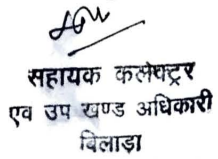 सहायक कलेक्ट्रर
एव उप खण्ड अधिकारी
बिलाड़ा